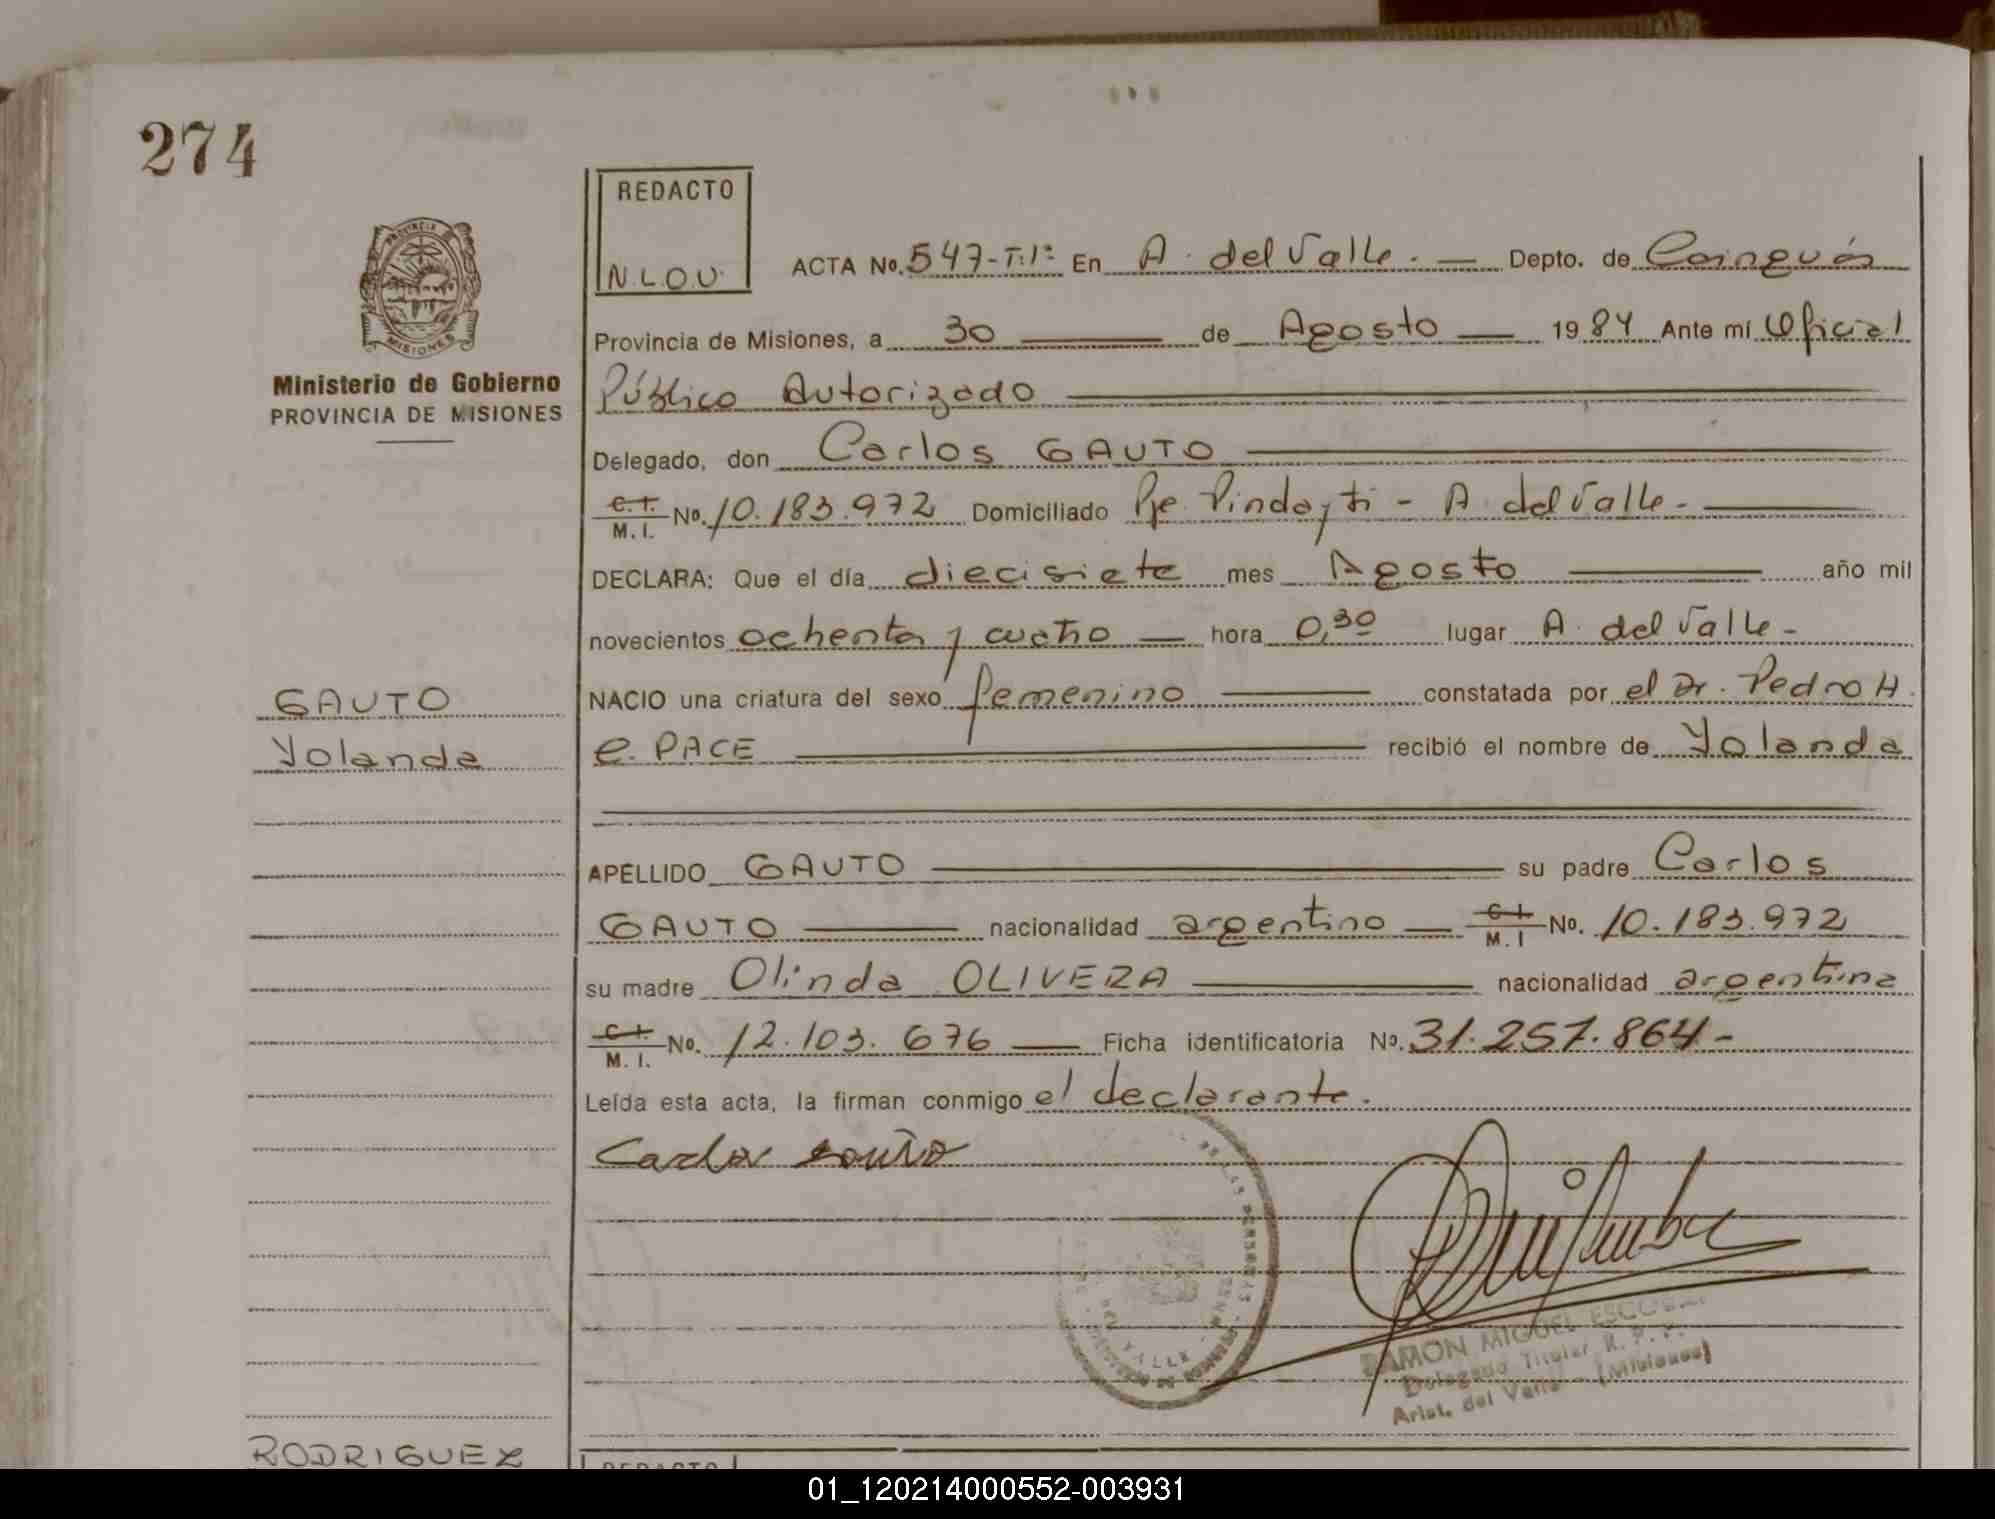 274
REDACTO
N.L.O.U.
PROVINCIA
MISIONES
Ministerio de Gobierno
PROVINCIA DE MISIONES
ACTA No. 547-T:1º En A. del Valle. — Depto. de Cainguás
Provincia de Misiones, a 30 — de Agosto — 1984 Ante mí Oficial
Público Autorizado
Delegado, don Carlos GAUTO
C.I. M.I. No. 10.183.972 Domiciliado Pje. Pindayti - A. del Valle.-
DECLARA: Que el día diecisiete mes Agosto — año mil
novecientos ochenta y cuatro — hora 0,30 lugar A. del Valle-
GAUTO
Yolanda
NACIO una criatura del sexo femenino — constatada por el Dr. Pedro H.
C. PACE — recibió el nombre de Yolanda
APELLIDO GAUTO — su padre Carlos
GAUTO — nacionalidad argentino — C.I. M.I No. 10.183.972
su madre Olinda OLIVERA — nacionalidad argentina
C.I. M.I. No. 12.103.676 — Ficha identificatoria No. 31.257.864-
Leída esta acta, la firman conmigo el declarante.
Carlos Gauto
DE LAS PERSONAS
DEL VALLE
RAMON MIGUEL ESCOBAR
Delegado Titular R. P. P.
Arist. del Valle - (Misiones)
RODRIGUEZ
REDACTO
01_120214000552-003931